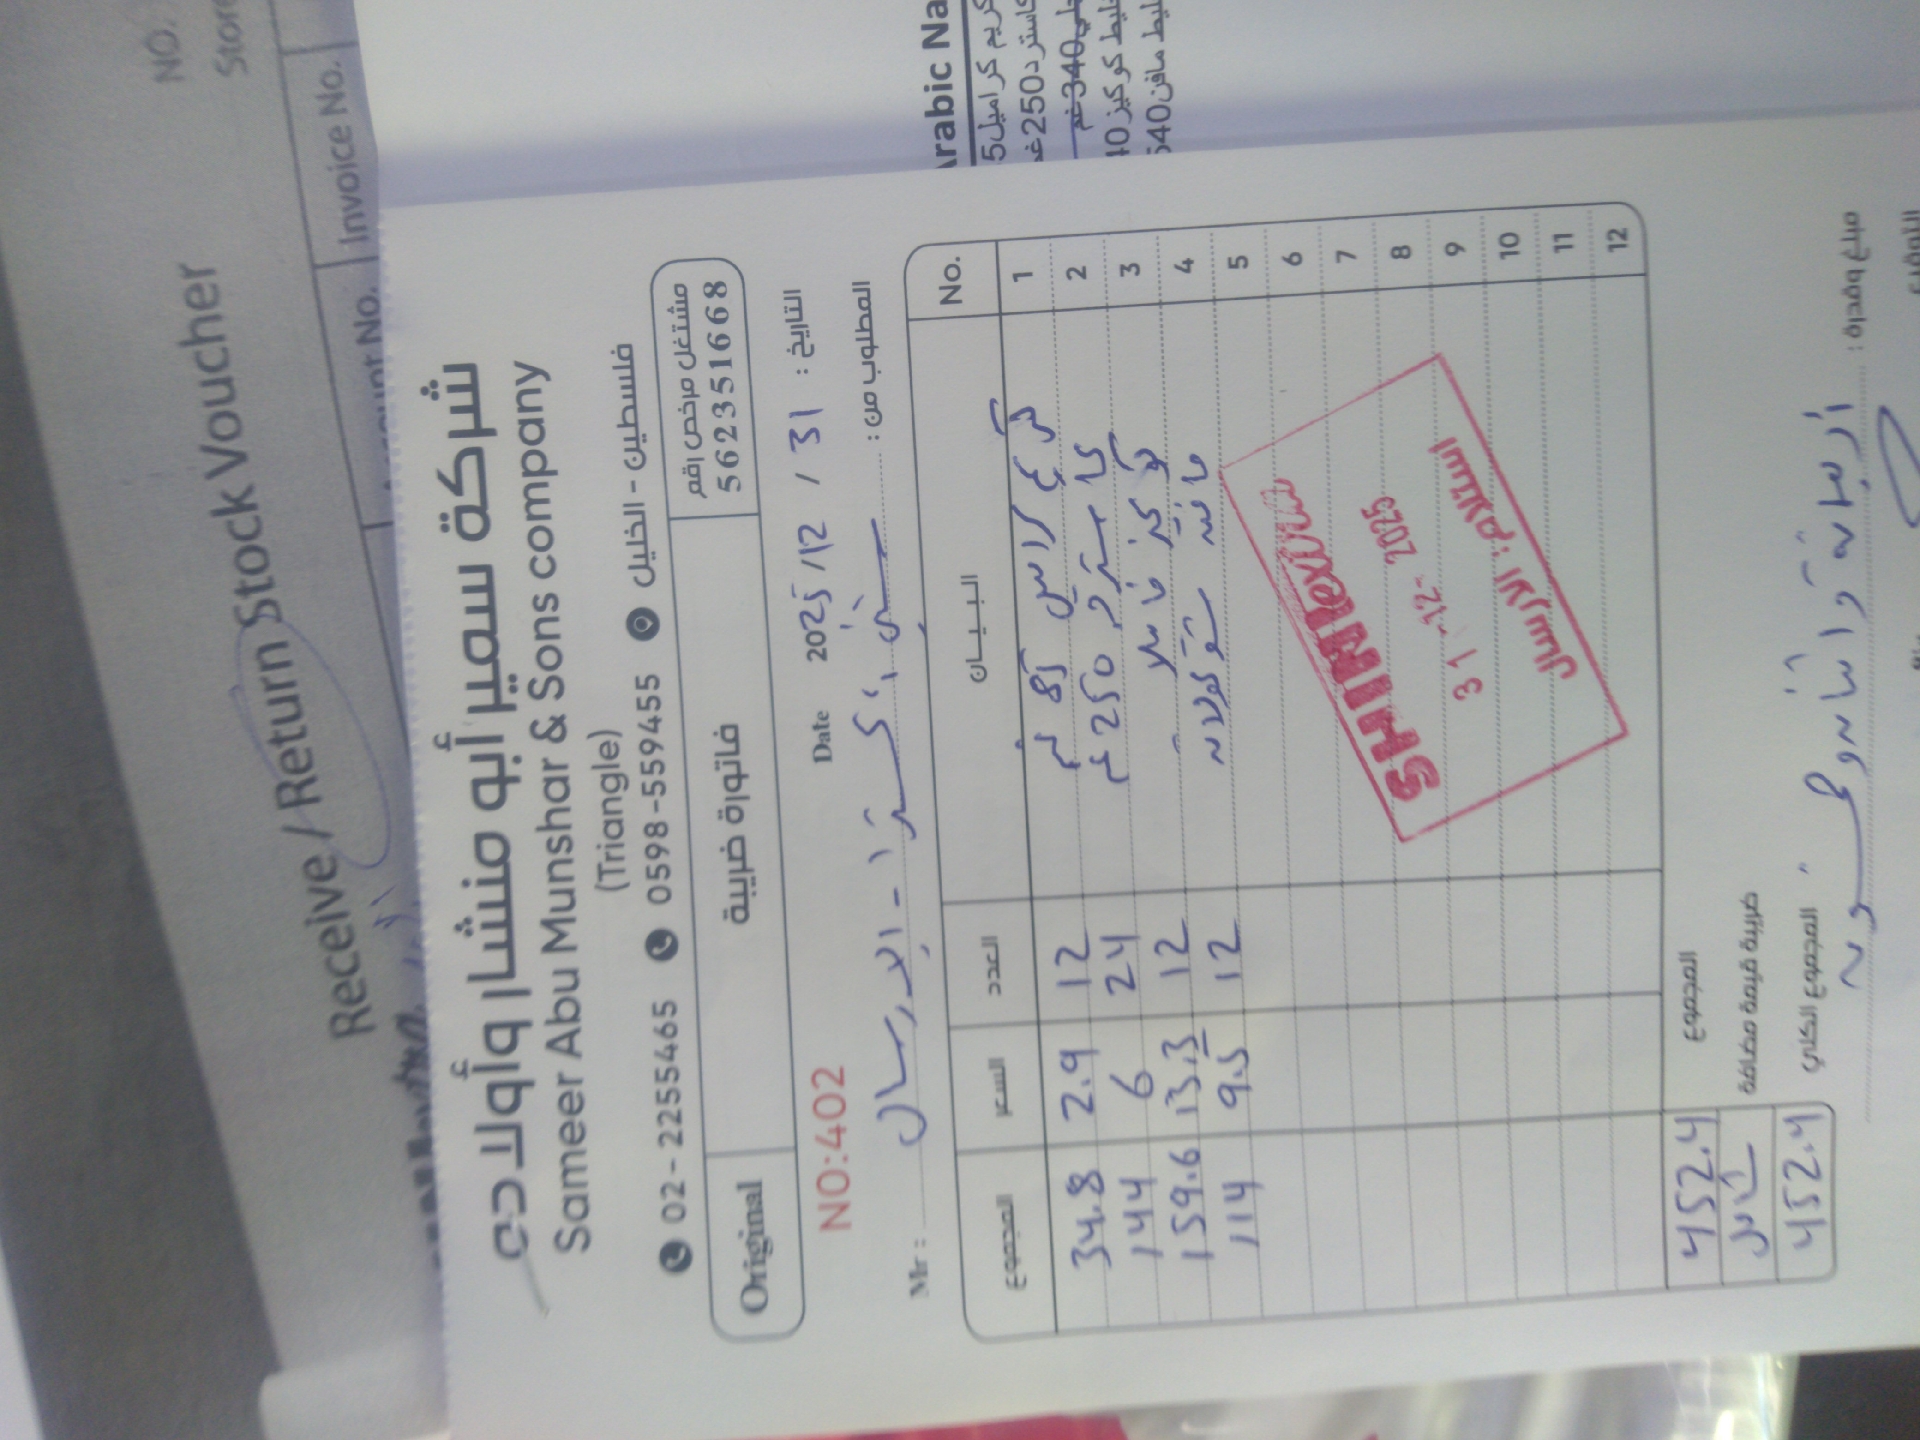 NO.
Store
Receive / Return Stock Voucher
Invoice No.
Account No.
Arabic Na
كريم كراميل 5
كاسترد 250 غ
لي 340 غم
خليط كوكيز 40
خليط مافن 540
شركة سمير أبو منشار وأولاده
Sameer Abu Munshar & Sons company
(Triangle)
02-2255465 0598-559455 فلسطين - الخليل
Original
فاتورة ضريبة
مشتغل مرخص رقم
562351668
NO:402
Date 2025/12/31 التاريخ :
Mr : - الإرسال المطلوب من :
No. البيـــان العدد السعر المجموع
1 كريم كراميل 85 غم 12 2.9 34.8
2 كاسترد 250 غم 24 6 144
3 كوكيز فانيلا 12 13.3 159.6
4 مافن شوكولاته 12 9.5 114
5
6
7
8
9
10
11
12
SHINI extra
31-12-2025
استلام: الإرسال
المجموع 452.4
ضريبة قيمة مضافة شامل
المجموع الكلي 452.4
مبلغ وقدره : أربعمائة واثنان وخمسون
التوقيع